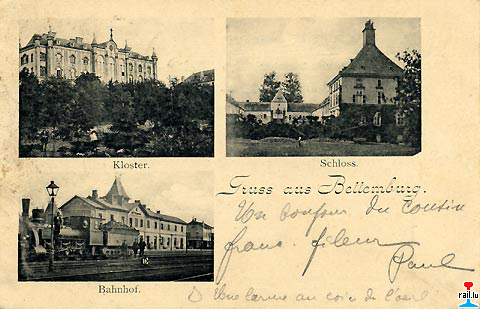 Kloster.
Schloss.
Gruss aus Bettemburg.
Un bonjour du cousin
franc.
Paul
Bahnhof.
une larme au coin de l'oeil
rail.lu